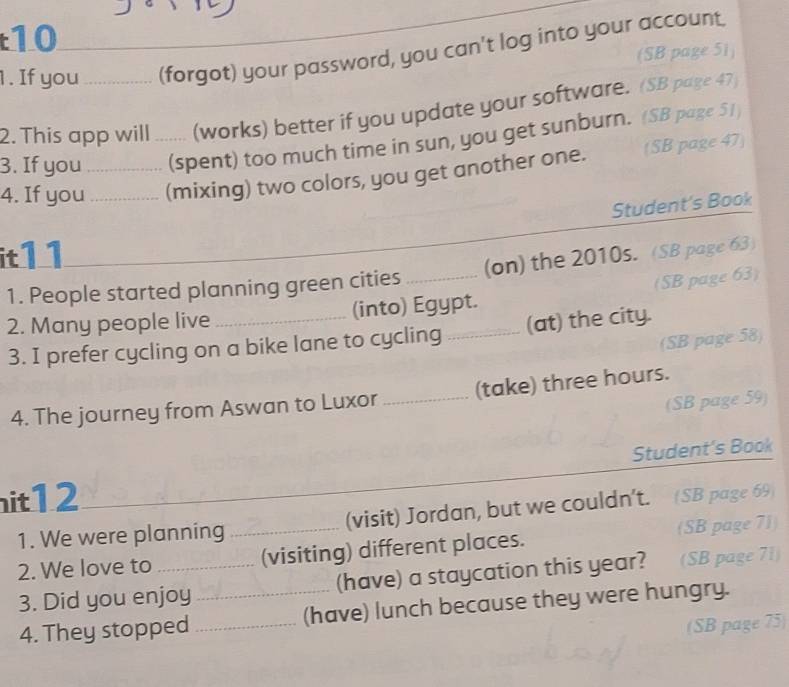 t10
1. If you ______ (forgot) your password, you can't log into your account. (SB page 51)
2. This app will ______ (works) better if you update your software. (SB page 47)
3. If you ______ (spent) too much time in sun, you get sunburn. (SB page 51)
4. If you ______ (mixing) two colors, you get another one. (SB page 47)
Student's Book
it11
1. People started planning green cities ______ (on) the 2010s. (SB page 63)
2. Many people live ______ (into) Egypt. (SB page 63)
3. I prefer cycling on a bike lane to cycling ______ (at) the city. (SB page 58)
4. The journey from Aswan to Luxor ______ (take) three hours. (SB page 59)
Student's Book
nit12
1. We were planning ______ (visit) Jordan, but we couldn't. (SB page 69)
2. We love to ______ (visiting) different places. (SB page 71)
3. Did you enjoy ______ (have) a staycation this year? (SB page 71)
4. They stopped ______ (have) lunch because they were hungry. (SB page 75)